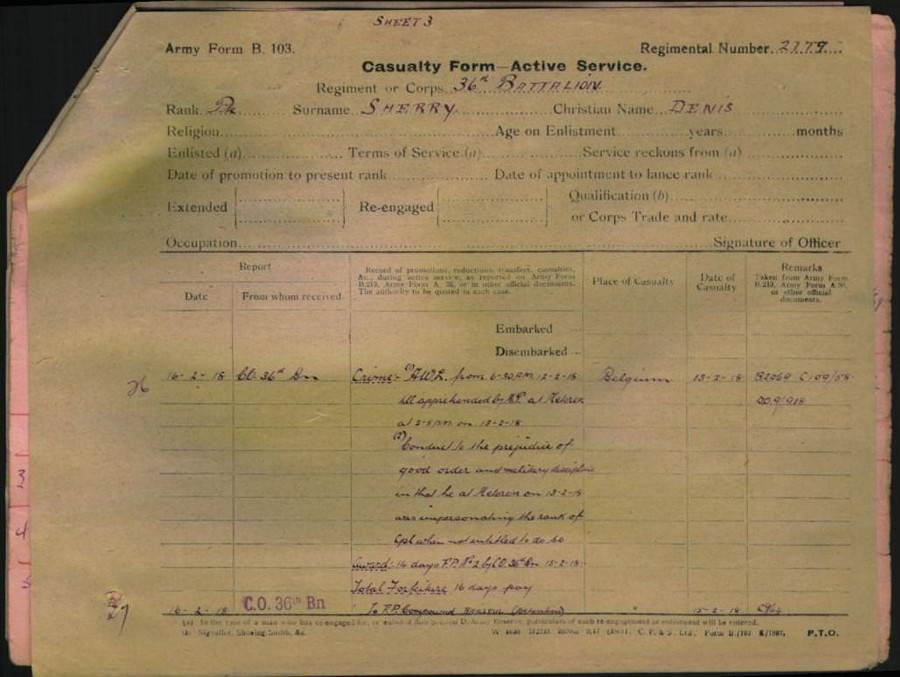 SHEET 3
Army Form B. 103. Regimental Number. 2179
Casualty Form—Active Service.
Regiment or Corps. 36th BATTALION
Rank Pte Surname SHERRY. Christian Name DENIS
Religion Age on Enlistment years months
Enlisted (a) Terms of Service (a) Service reckons from (a)
Date of promotion to present rank Date of appointment to lance rank
Extended Re-engaged Qualification (b)
or Corps Trade and rate
Occupation Signature of Officer
Report
Date From whom received
Record of promotions, reductions, transfers, casualties,
&c., during active service, as reported on Army Form
B.213, Army Form A. 36, or in other official documents.
The authority to be quoted in each case.
Place of Casualty
Date of
Casualty
Remarks
Taken from Army Form
B.213, Army Form A.36,
or other official
documents.
Embarked
Disembarked
16-2-18 36th Bn Crime:- (1) AWL from 6-30 PM 12-2-18 Belgium 13-2-18 B2069
till apprehended by MP. at
at on 13-2-18
(2) Conduct to the prejudice of
good order and military discipline
in that he at on 13-2-18
was impersonating the rank of
Cpl when not entitled to do so
Award: 16 days F.P. No 2 by CO. 36th Bn 15-2-18
Total Forfeiture 16 days pay
16-2-18 C.O. 36th Bn To F.P. Compound 15-2-18
(a) In the case of a man who has re-engaged for, or enlisted into Section D. Army Reserve, particulars of such re-engagement or enlistment will be entered.
(b) Signaller, Shoeing Smith, &c. P.T.O.
26